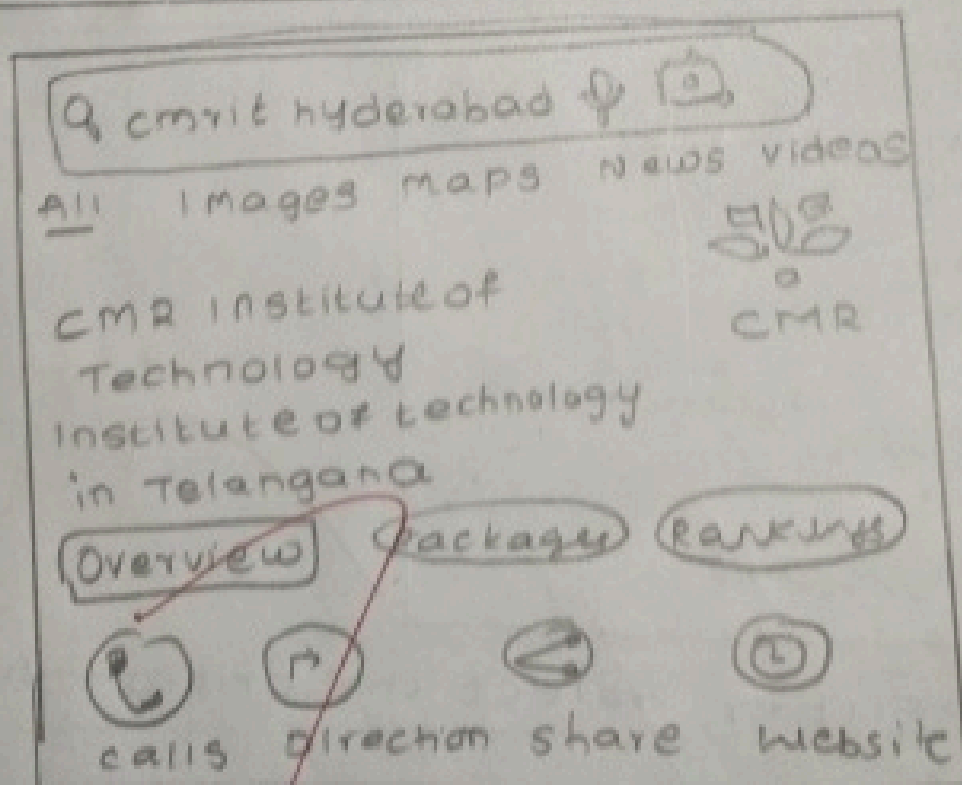 cmrit hyderabad
All Images maps News videos
CMR institute of
Technology
institute of technology
in Telangana
CMR
Overview Packages Rankings
calls Direction share website